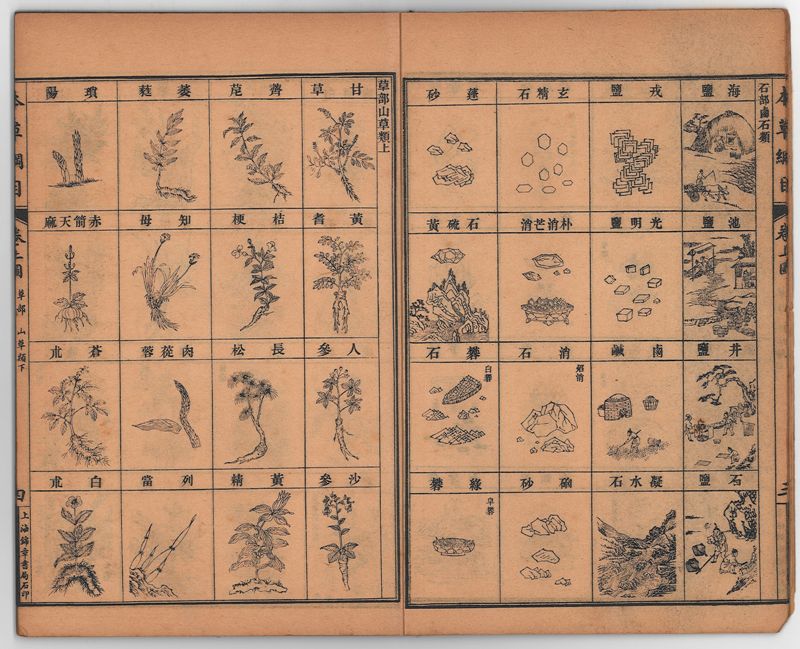 本草綱目
卷上圖
三
石部鹵石類
海鹽
戎鹽
玄精石
蓬砂
池鹽
光明鹽
朴消芒消
石硫黃
井鹽
鹵鹹
消石
焰消
礬石
白礬
石鹽
凝水石
硇砂
綠礬
皁礬
草部山草類上
甘草
薺苨
萎蕤
瑣陽
黃耆
桔梗
知母
赤箭天麻
人參
長松
肉蓯蓉
蒼朮
沙參
黃精
列當
白朮
本草綱目
卷上圖
草部 山草類下
四
上海錦章書局石印